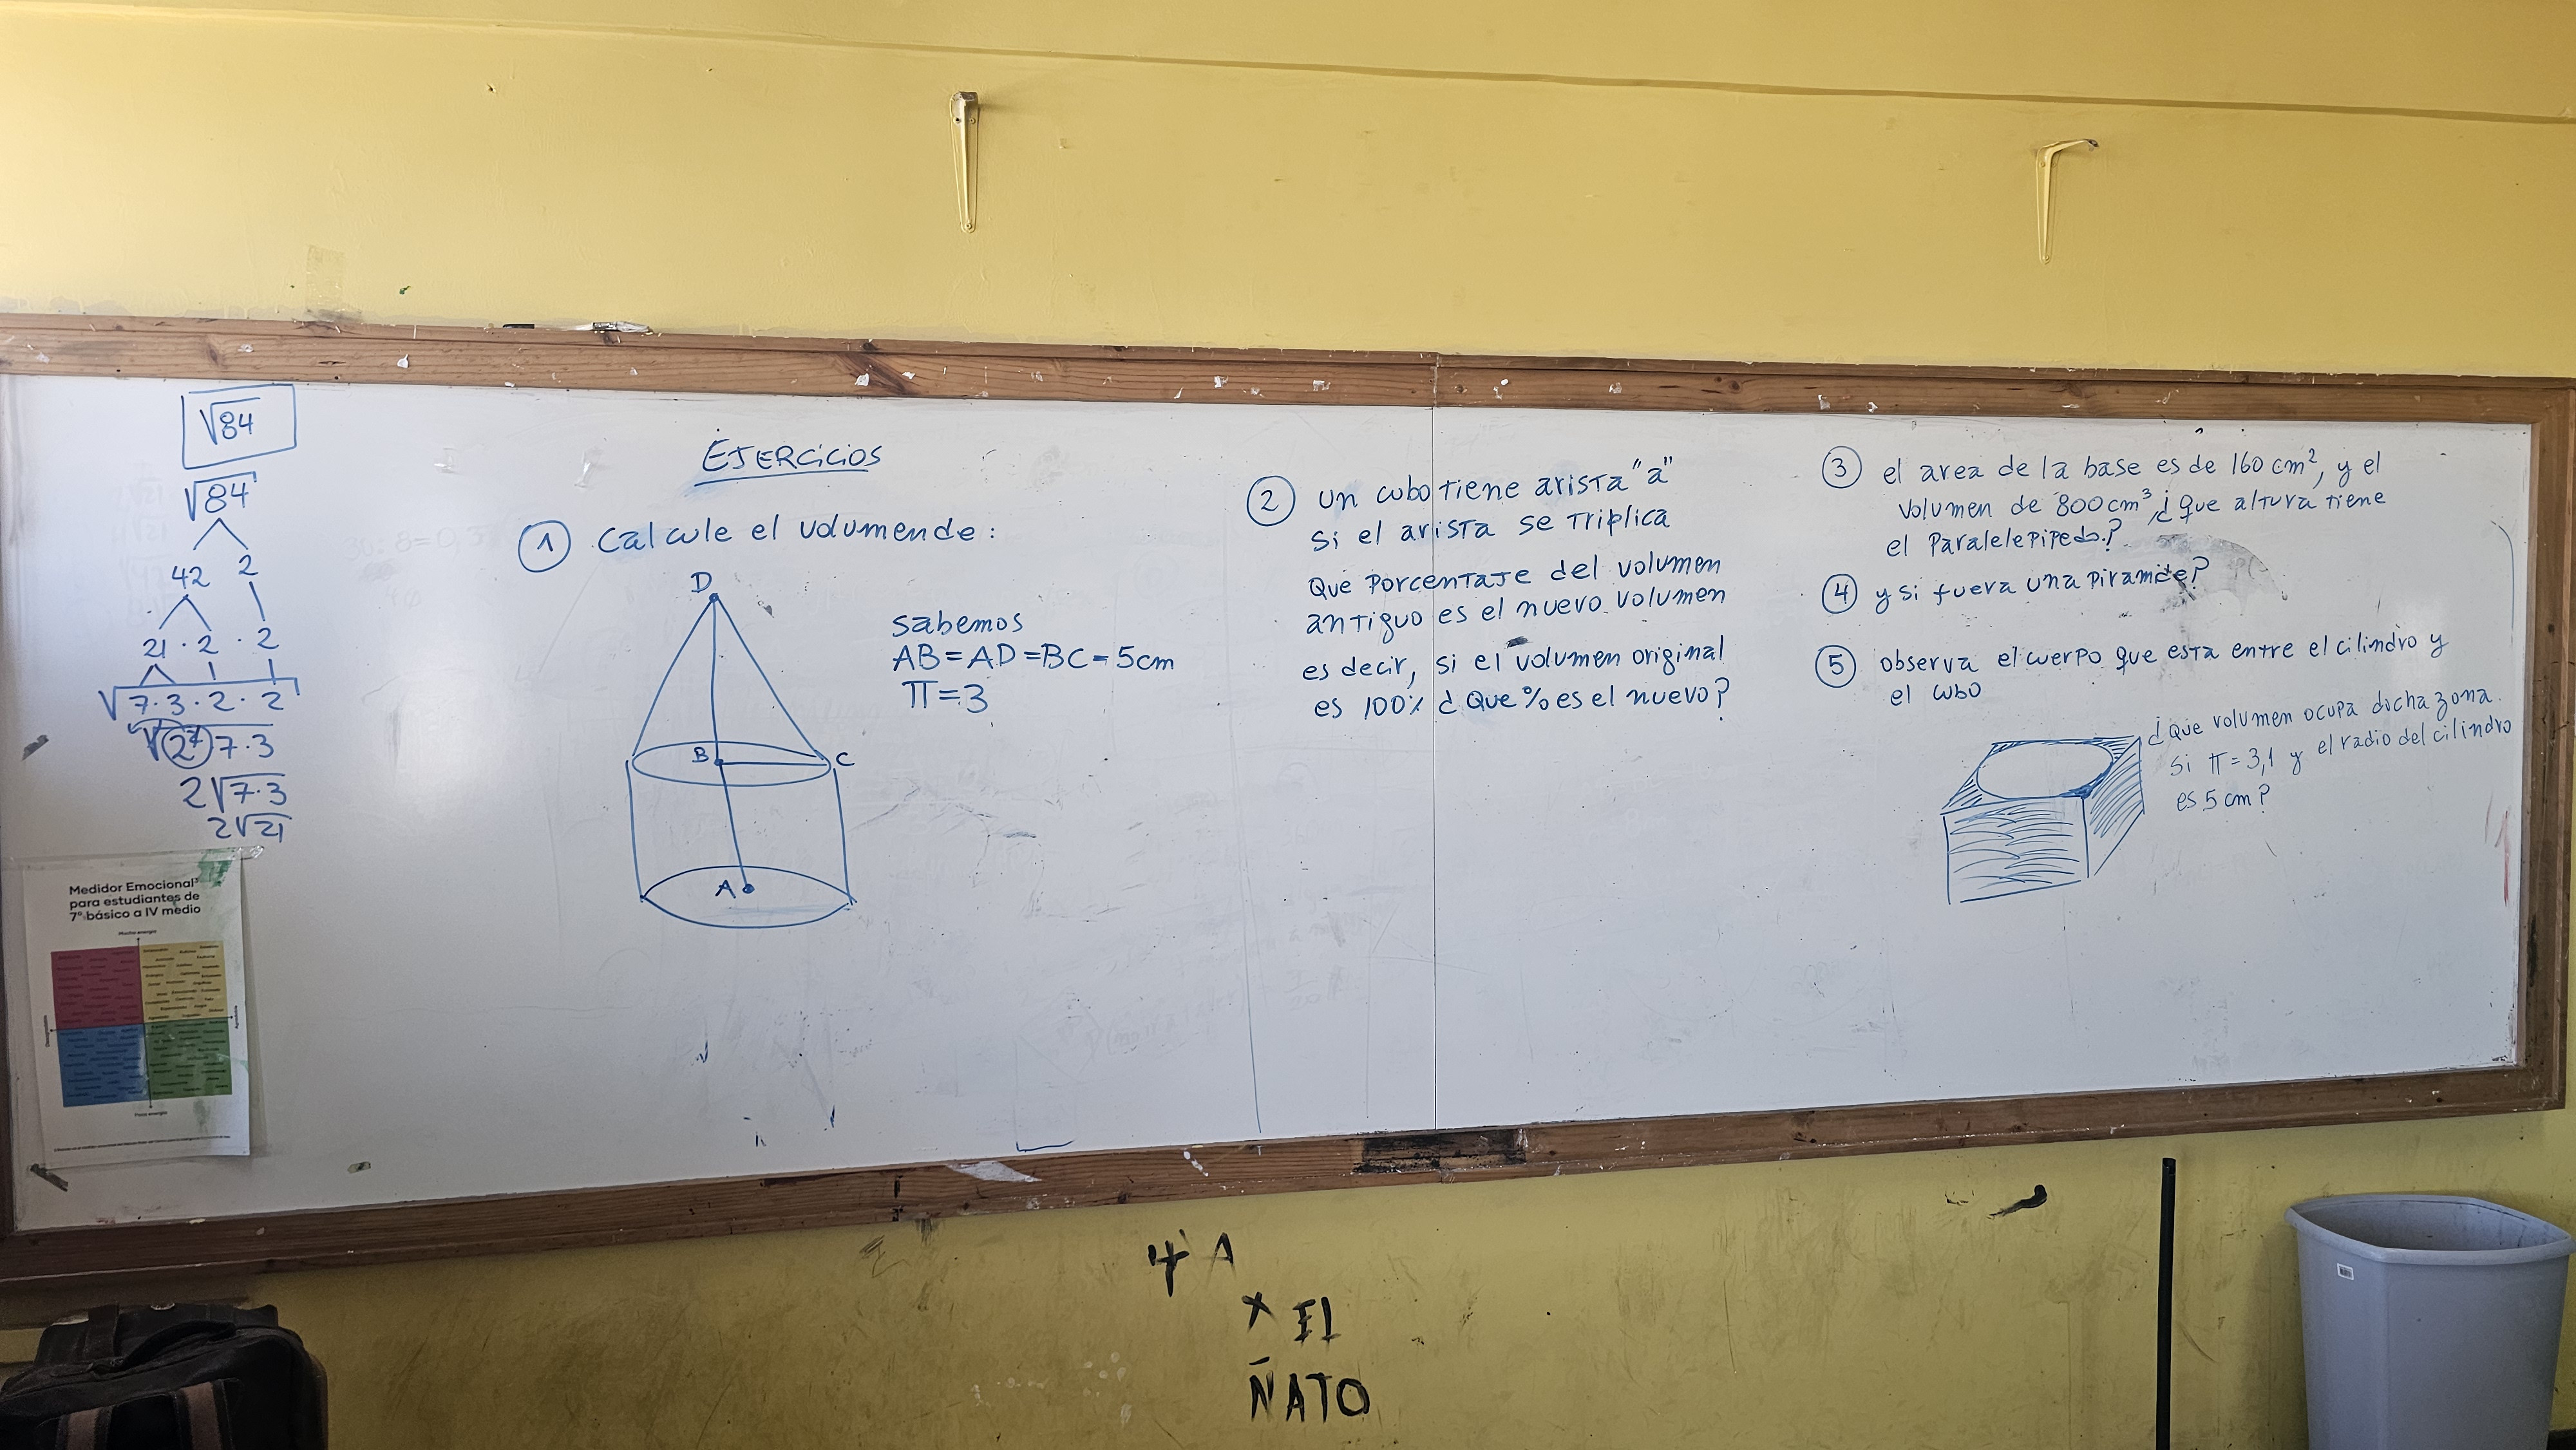 √84
√84
42 2
21 · 2 · 2
√7·3·2·2
√2² 7·3
2√7·3
2√21
Medidor Emocional
para estudiantes de
7° básico a IV medio
Mucha energía
Poca energía
EJERCiCiOS
1 Calcule el volumen de:
D
B
C
A
sabemos
AB=AD=BC=5cm
π=3
2 un cubo tiene arista "a"
si el arista se triplica
Que porcentaje del volumen
antiguo es el nuevo volumen
es decir, si el volumen original
es 100% ¿Que % es el nuevo?
3 el area de la base es de 160 cm², y el
volumen de 800 cm³, ¿Que altura tiene
el Paralelepipedo?
4 y si fuera una piramide?
5 observa el cuerpo que esta entre el cilindro y
el cubo
¿Que volumen ocupa dicha zona.
si π=3,1 y el radio del cilindro
es 5 cm?
4 A
x El
ÑATO